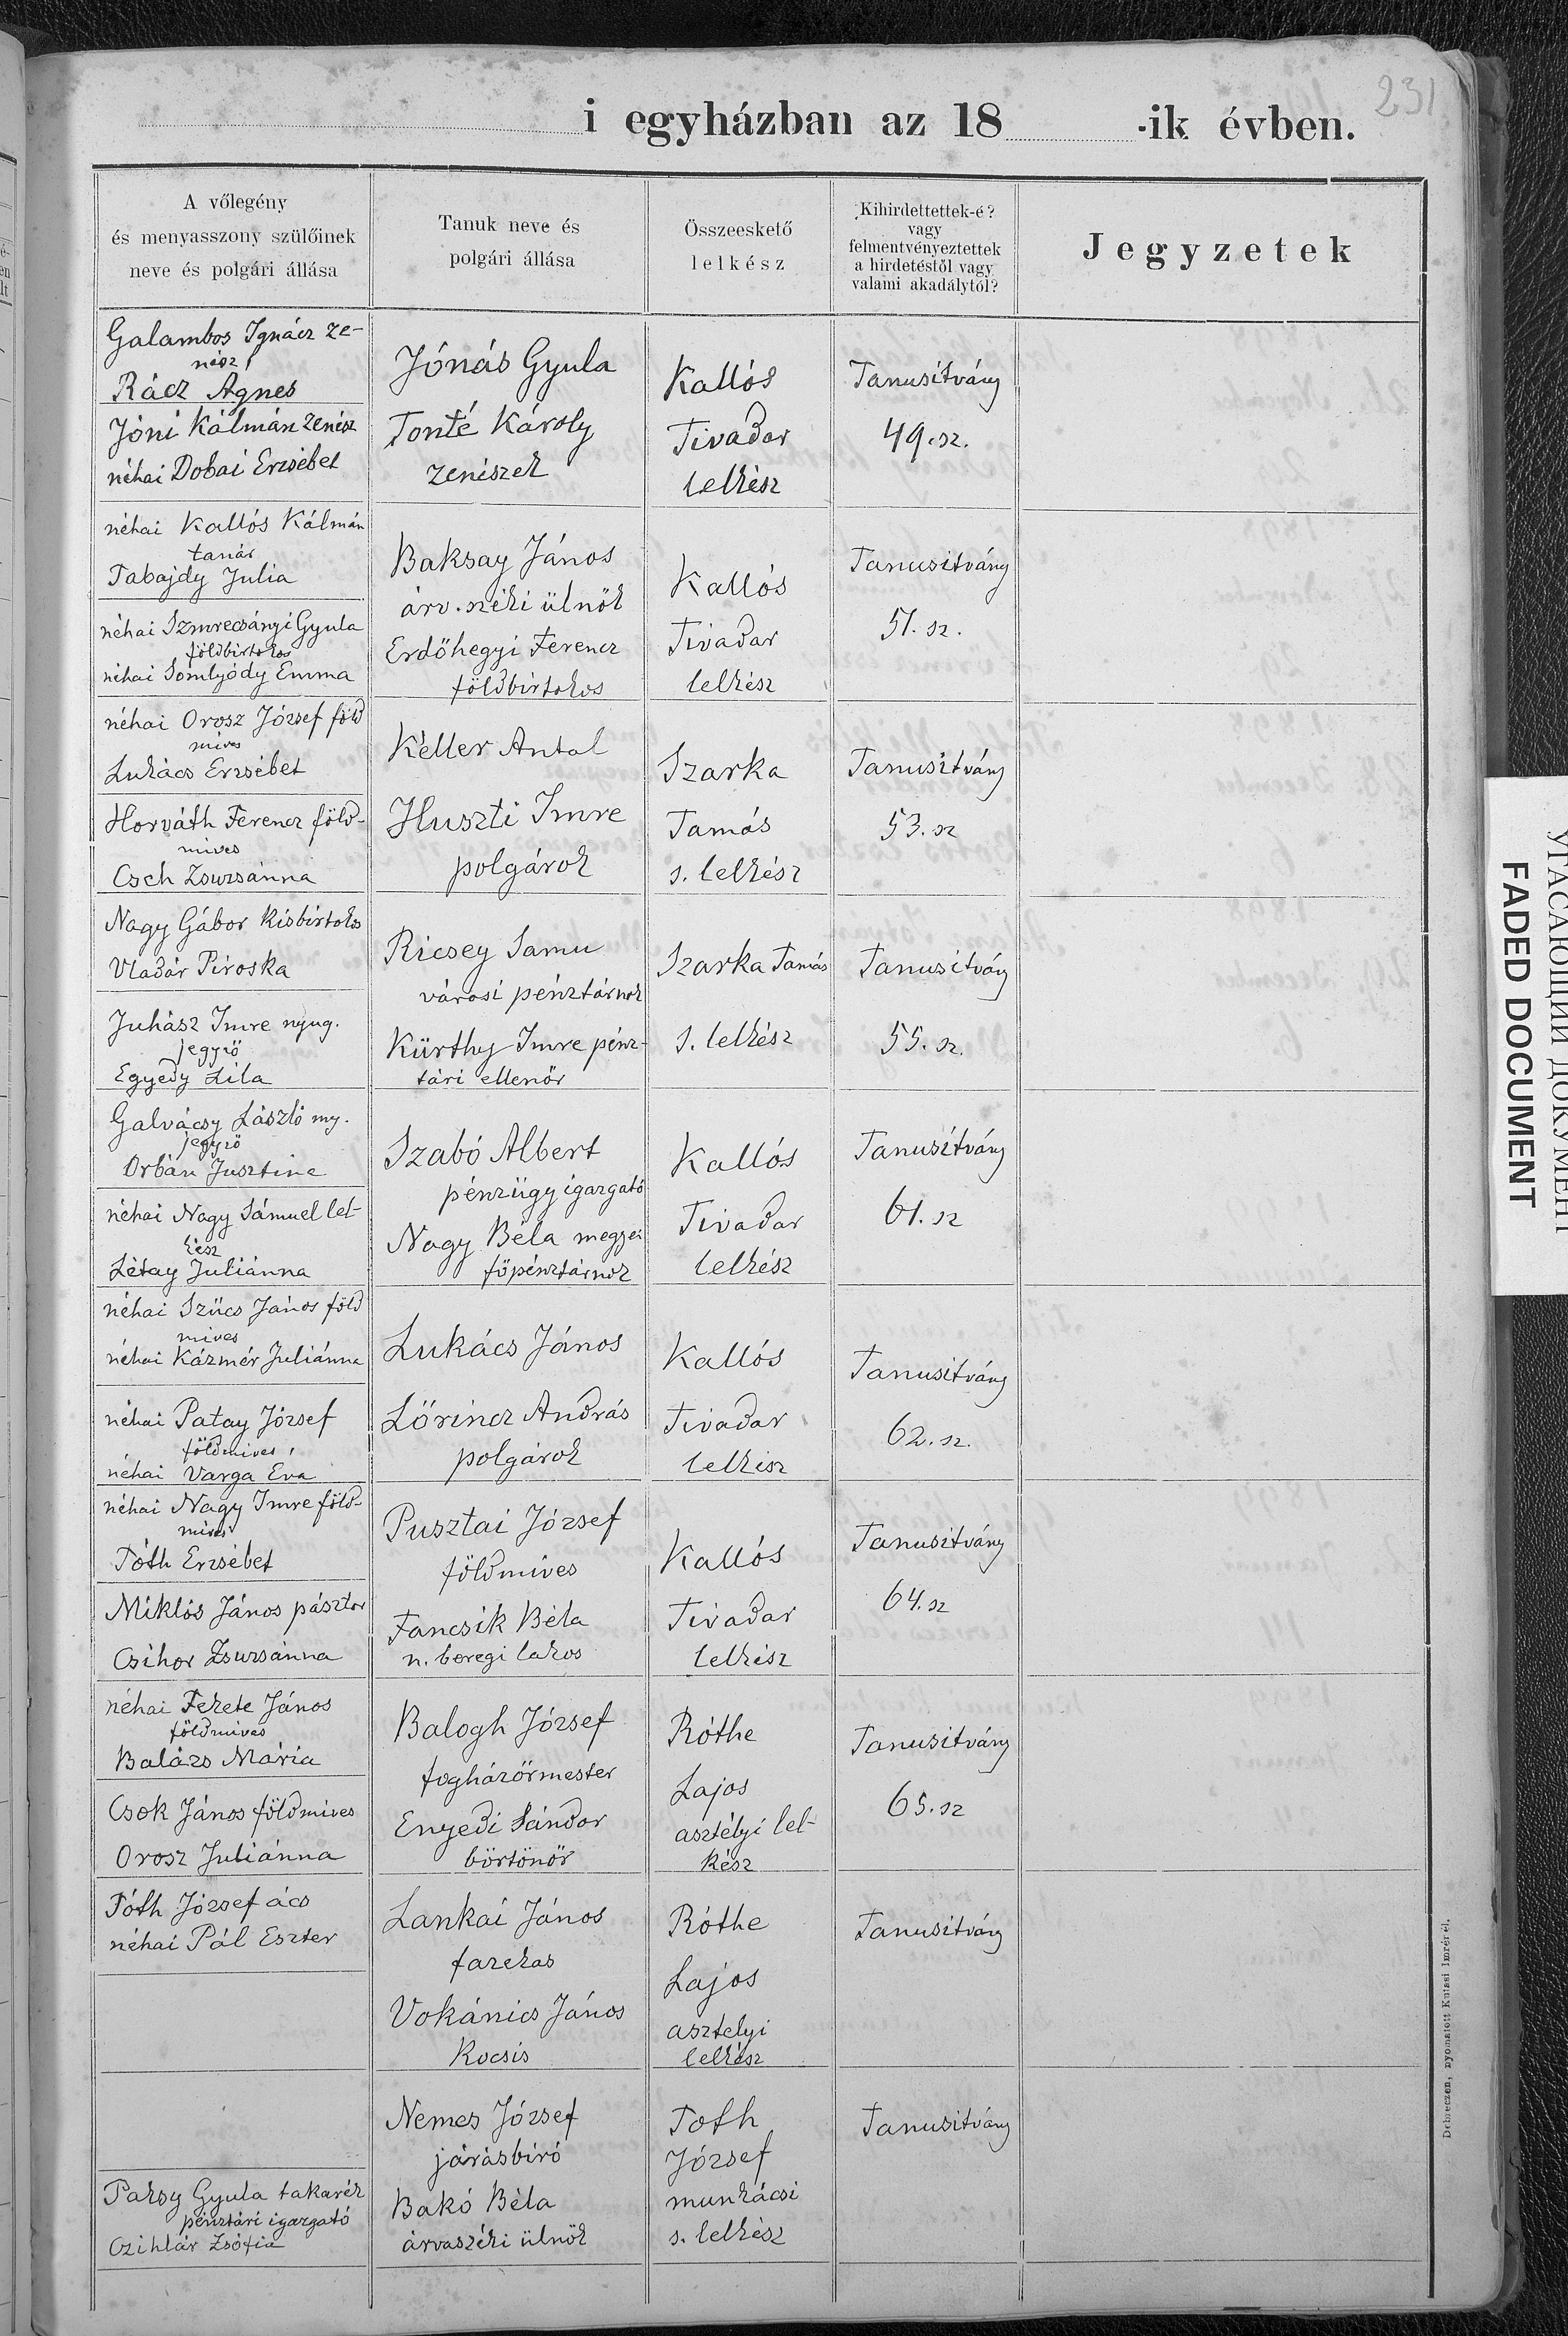 231
i egyházban az 18 -ik évben.
A vőlegény
és menyasszony szülőinek
neve és polgári állása
Tanuk neve és
polgári állása
Összeeskető
lelkész
Kihirdettettek-é?
vagy
felmentvényeztettek
a hirdetéstől vagy
valami akadálytól?
Jegyzetek
Galambos Ignácz ze-
nész
Rácz Ágnes
Jóni Kálmán zenész
néhai Dobai Erzsébet
Jónás Gyula
Tonté Károly
zenészek
Kallós
Tivadar
lelkész
Tanusitvány
49. sz.
néhai Kallós Kálmán
tanár
Tabajdy Julia
néhai Szmrecsányi Gyula
földbirtokos
néhai Somlyódy Emma
Baksay János
árv. széki ülnök
Erdőhegyi Ferencz
földbirtokos
Kallós
Tivadar
lelkész
Tanusitvány
51. sz.
néhai Orosz József föld
mives
Lukács Erzsébet
Horváth Ferencz föld-
mives
Cseh Zsuzsánna
Keller Antal
Huszti Imre
polgárok
Szarka
Tamás
s. lelkész
Tanusitvány
53. sz
Nagy Gábor kisbirtokos
Vladár Piroska
Juhász Imre nyug.
jegyző
Egyedy Lila
Ricsey Samu
városi pénztárnok
Kürthy Imre pénz-
tári ellenőr
Szarka Tamás
s. lelkész
Tanusitvány
55. sz.
Galvácsy László ny.
jegyző
Orbán Jusztine
néhai Nagy Sámuel lel-
kész
Létay Juliánna
Szabó Albert
pénzügy igazgató
Nagy Béla megyei
főpénztárnok
Kallós
Tivadar
lelkész
Tanusitvány
61. sz
néhai Szücs János föld
mives
néhai Kázmér Juliánna
néhai Patay József
földmives
néhai Varga Éva
Lukács János
Lőrincz András
polgárok
Kallós
Tivadar
lelkész
Tanusitvány
62. sz.
néhai Nagy Imre föld-
mives
Tóth Erzsébet
Miklós János pásztor
Csihor Zsuzsánna
Pusztai József
földmives
Fancsik Béla
n. beregi lakos
Kallós
Tivadar
lelkész
Tanusitvány
64. sz
néhai Fekete János
földmives
Balázs Mária
Csok János földmives
Orosz Juliánna
Balogh József
fogházőrmester
Enyedi Sándor
börtönőr
Róthe
Lajos
asztélyi lel-
kész
Tanusitvány
65. sz
Tóth József ács
néhai Pál Eszter
Lankai János
fazekas
Vokánics János
kocsis
Róthe
Lajos
asztelyi
lelkész
Tanusitvány
Nemes József
járásbiró
Bakó Béla
árvaszéki ülnök
Toth
József
munkácsi
s. lelkész
Tanusitvány
Paksy Gyula takarék
pénztári igazgató
Czihlár Zsófia
Debreczen, nyomatott Kutasi Imrénél.
УГАСАЮЩИЙ ДОКУМЕНТ
FADED DOCUMENT